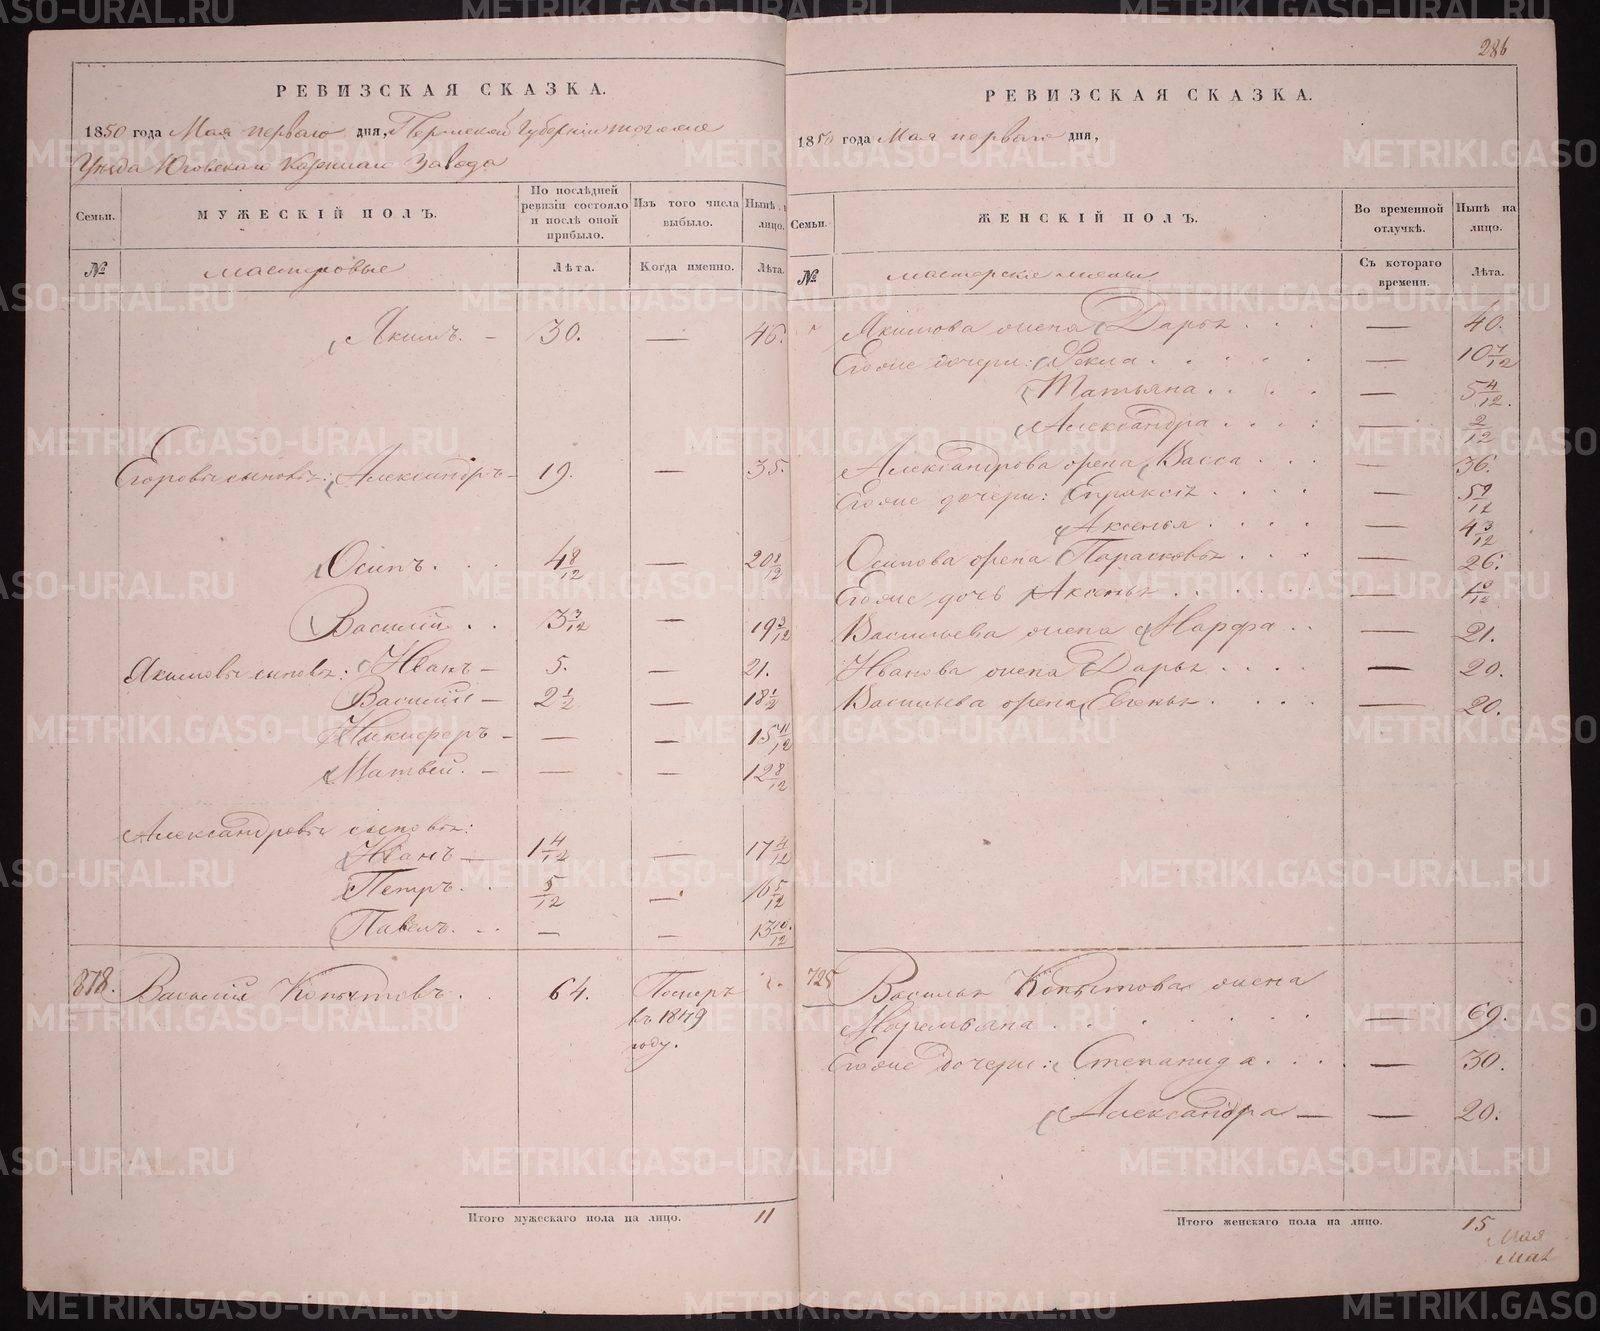 286
РЕВИЗСКАЯ СКАЗКА.
1850 года Мая перваго дня, Пермской Губернии тогоже
Уезда Юговскаго Казеннаго Завода
Семьи.
МУЖЕСКІЙ ПОЛЪ.
По послѣдней ревизіи состояло и послѣ оной прибыло.
Изъ того числа выбыло.
Нынѣ лицо.
№
мастеровые
Лѣта.
Когда именно.
Лѣта.
Якимъ. – 30. — 46.
Егоровы сыновья: Александръ – 19. — 35.
Осипъ. . . 4 8/12 — 20 8/12
Василій . . 3 3/12 — 19 3/12
Якимовы сыновья: Иванъ – 5. — 21.
Василій – 2 1/2 — 18 1/2
Никифоръ – — — 15 11/12
Матвей. – — — 12 8/12
Александровы сыновья:
Иванъ — 1 4/12 — 17 4/12
Петръ. . 5/12 — 16 5/12
Павелъ. . . — — 13 10/12
878. Василій Копытовъ. . 64. Померъ
въ 1849
году.
Итого мужескаго пола на лицо. 11
РЕВИЗСКАЯ СКАЗКА.
1850 года Мая перваго дня,
Семьи.
ЖЕНСКІЙ ПОЛЪ.
Во временной отлучкѣ.
Нынѣ на лицо.
№
мастерские жены
Съ котораго времени.
Лѣта.
Якимова жена Дарья . . . — 40.
Егоже дочери: Фекла . . . . . — 10 7/12
Татьяна . . . . — 5 4/12.
Александра . . . : — 2/12
Александрова жена Васса . . . — 36.
Егоже дочери: Евраксія . . . . — 5 9/12
Аксенья . . . . — 4 3/12
Осипова жена Парасковья . . . — 26.
Егоже дочь Аксенья . . . . . . —
Васильева жена Марфа . . — 21.
Иванова жена Дарья . . . . — 20.
Васильева жена Евгенья . . . . — 20.
725 Василья Копытова жена
Маремьяна . . . . . . . — 69.
Егоже дочери: Степанида . . . — 30.
Александра — — 20.
Итого женскаго пола на лицо. 15
Мая
Мая
METRIKI.GASO-URAL.RU